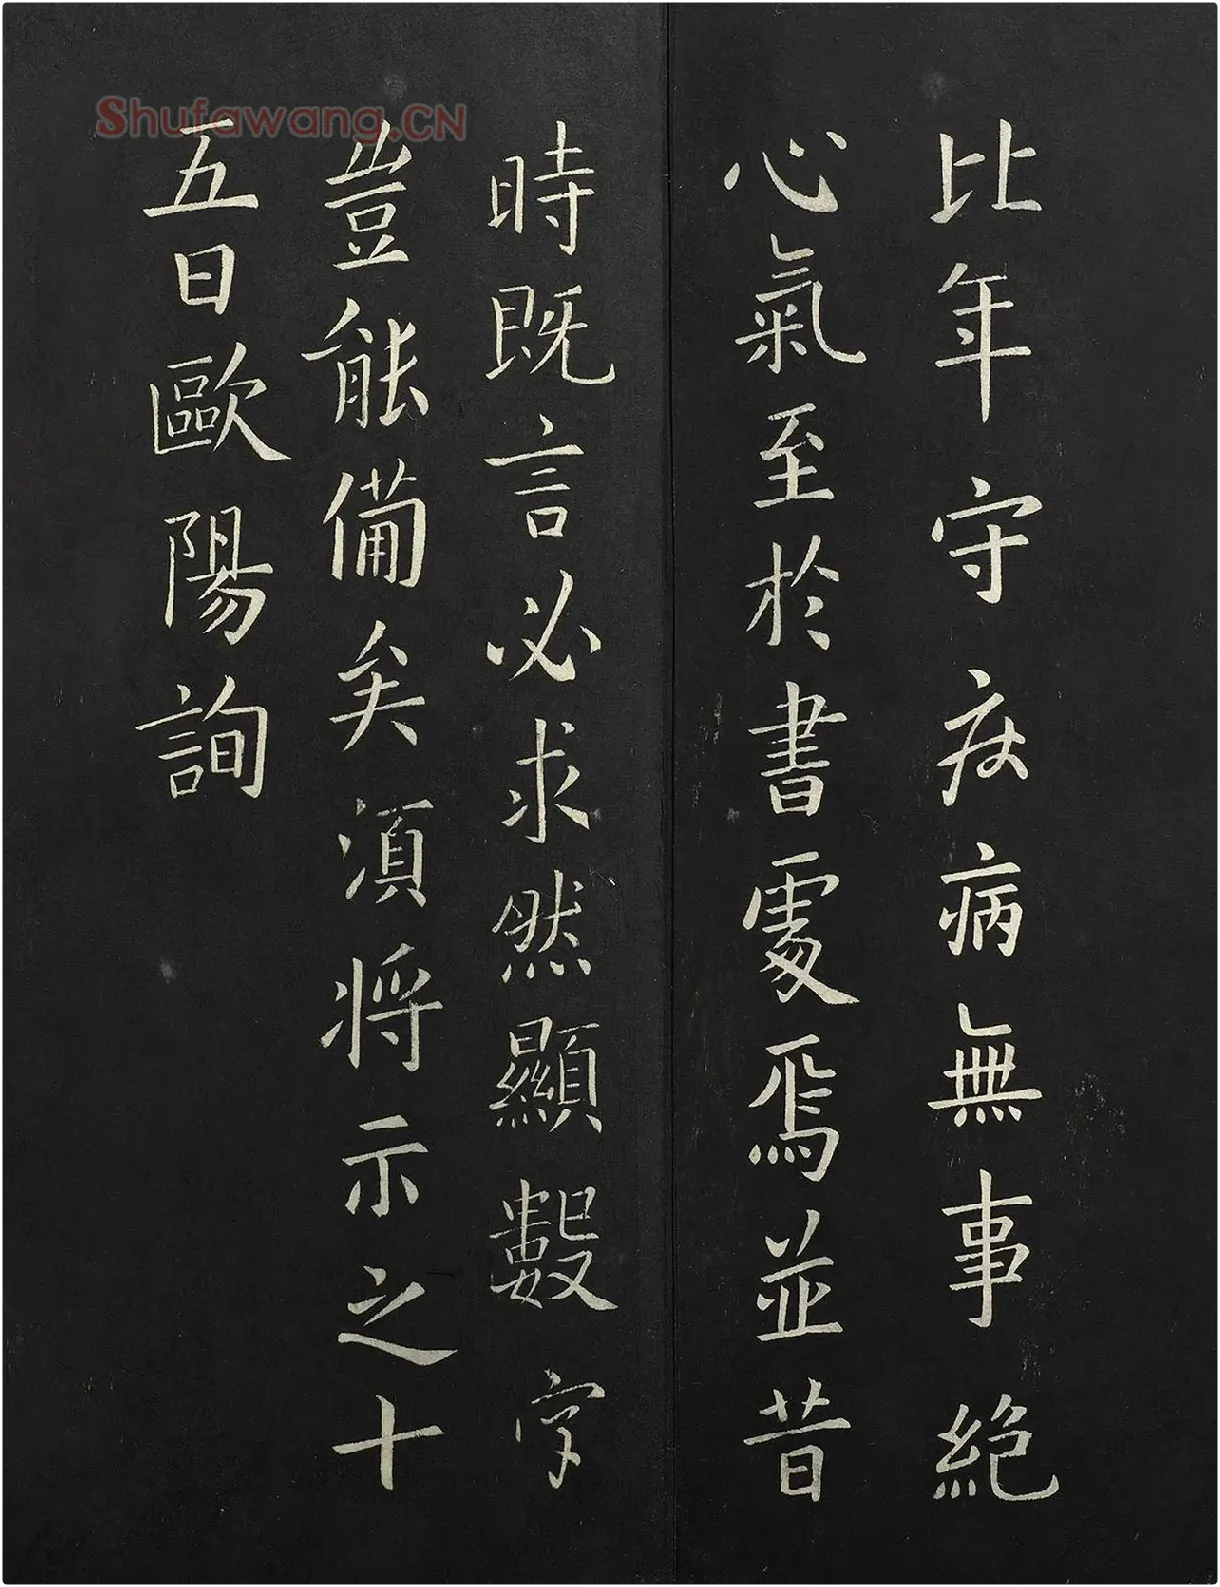 比年守疾病無事絶
心氣至於書處焉並昔
時既言必求然顯數字
豈能備矣須將示之十
五日歐陽詢
Shufawang.CN